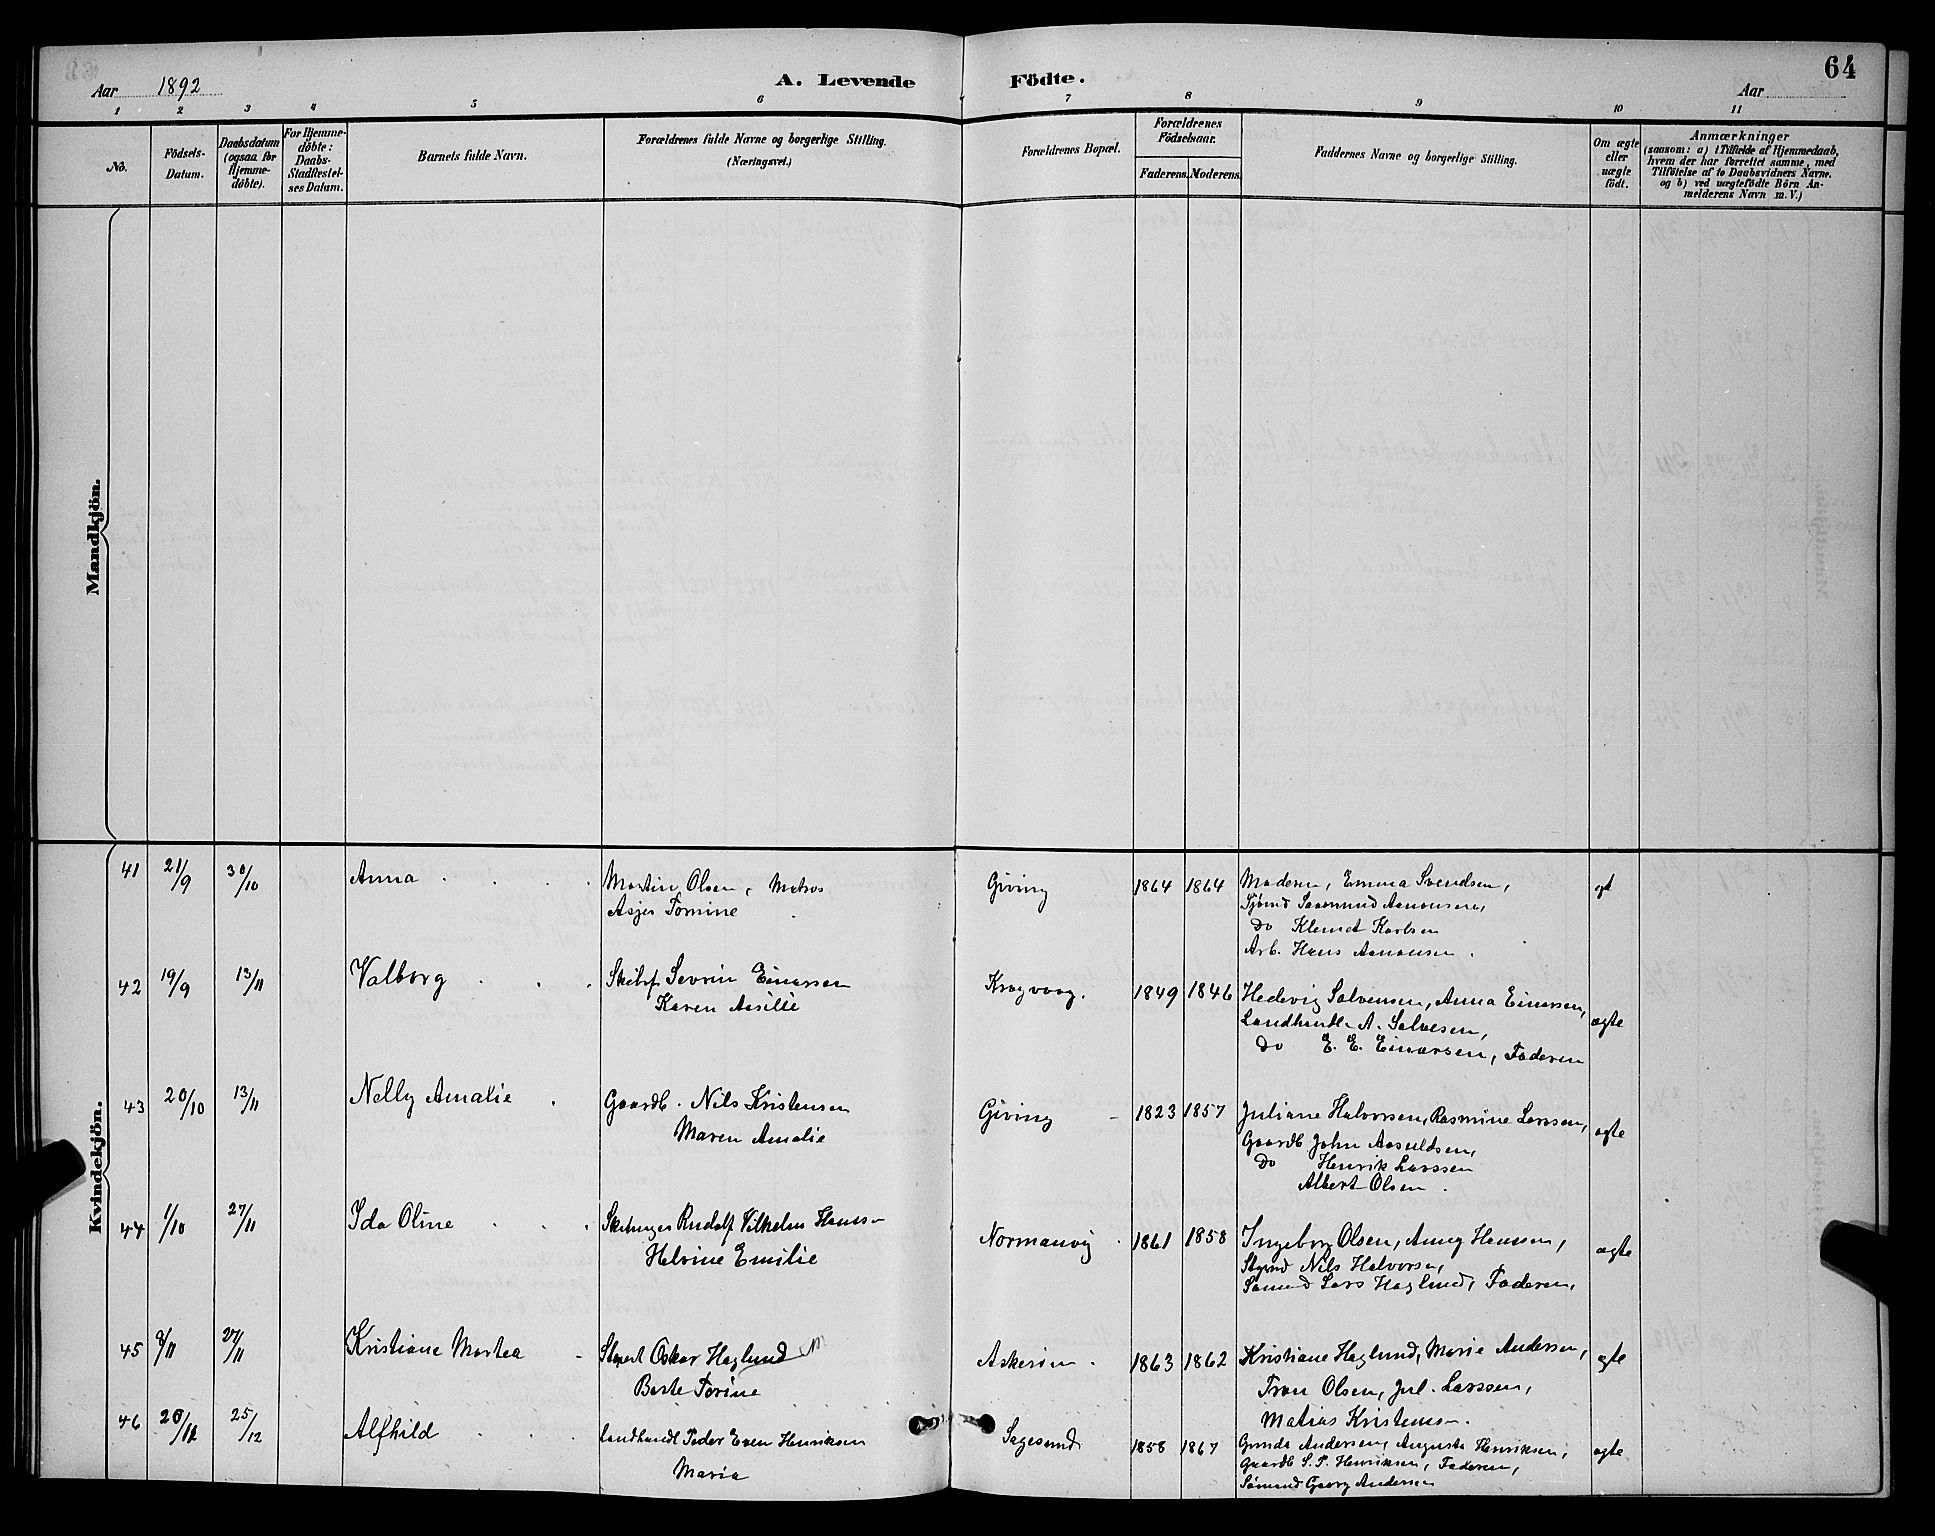 64
Aar 1892
A. Levende Födte.
Aar
1 2 3 4 5 6 7 8 9 10 11
No.
Födsels-
Datum.
Daabsdatum
(ogsaa for
Hjemme-
döbte).
For Hjemme-
döbte:
Daabs-
Stadfæstel-
ses Datum.
Barnets fulde Navn.
Forældrenes fulde Navne og borgerlige Stilling.
(Næringsvei.)
Forældrenes Bopæl.
Forældrenes
Födselsaar.
Faderens. Moderens.
Faddernes Navne og borgerlige Stilling.
Om ægte
eller
uægte
födt.
Anmærkninger
(saasom: a) i Tilfælde af Hjemmedaab,
hvem der har forrettet samme, med
Tilföielse af to Daabsvidners Navne.
og b) ved uægtefödte Börn An-
melderens Navn m. V.)
Mandkjön.
Kvindekjön.
41 21/9 30/10 Anna
Martin Olsen, Matros
Asjer Tomine
Giving 1864 1864
Moderen, Emma Svendsen,
Sjömd Saamund Aanonsen,
Do Klemet Karlsen
Arb. Hans Aanonsen.
42 19/9 13/11 Valborg
Skibsf Severin Einarsen
Karen Asilie
Kragvaag. 1849 1846
Hedevig Salvensen, Anna Einersen,
Landhandl. A. Salvesen,
Do E. E. Einersen, Faderen
ægte
43 20/10 13/11 Nelly Amalie
Gaardb. Nils Kristensen
Maren Amalie
Giving 1823 1857
Juliane Halvorsen, Rasmine Larssen,
Gaardb John Aasuldsen,
Do Henrik Larssen
Albert Olsen.
ægte
44 1/10 27/11 Ida Oline
Rudolf Vilhelm Hansen
Helvine Emilie
Normanvig 1861 1858
Ingeborg Olsen, Aney Hansen,
Nils Halvorsen,
Sömand Lars Haglund, Faderen,
ægte
45 8/11 27/11 Kristiane Martea
Oskar Haglund
Berte Torine
Askeröen. 1863 1862
Kristiane Haglund, Marie Andersen,
Tron Olsen, Jul. Larssen,
Matias Kristensen.
ægte
46 25/12 Alfhild
Landhandl Peder Even Henriksen
Maria
Sagesund 1858 1867
Gunda Andersen, Augusta Henriksen,
Gaardb S. P. Henriksen, Faderen,
Sömand Georg Andersen
ægte